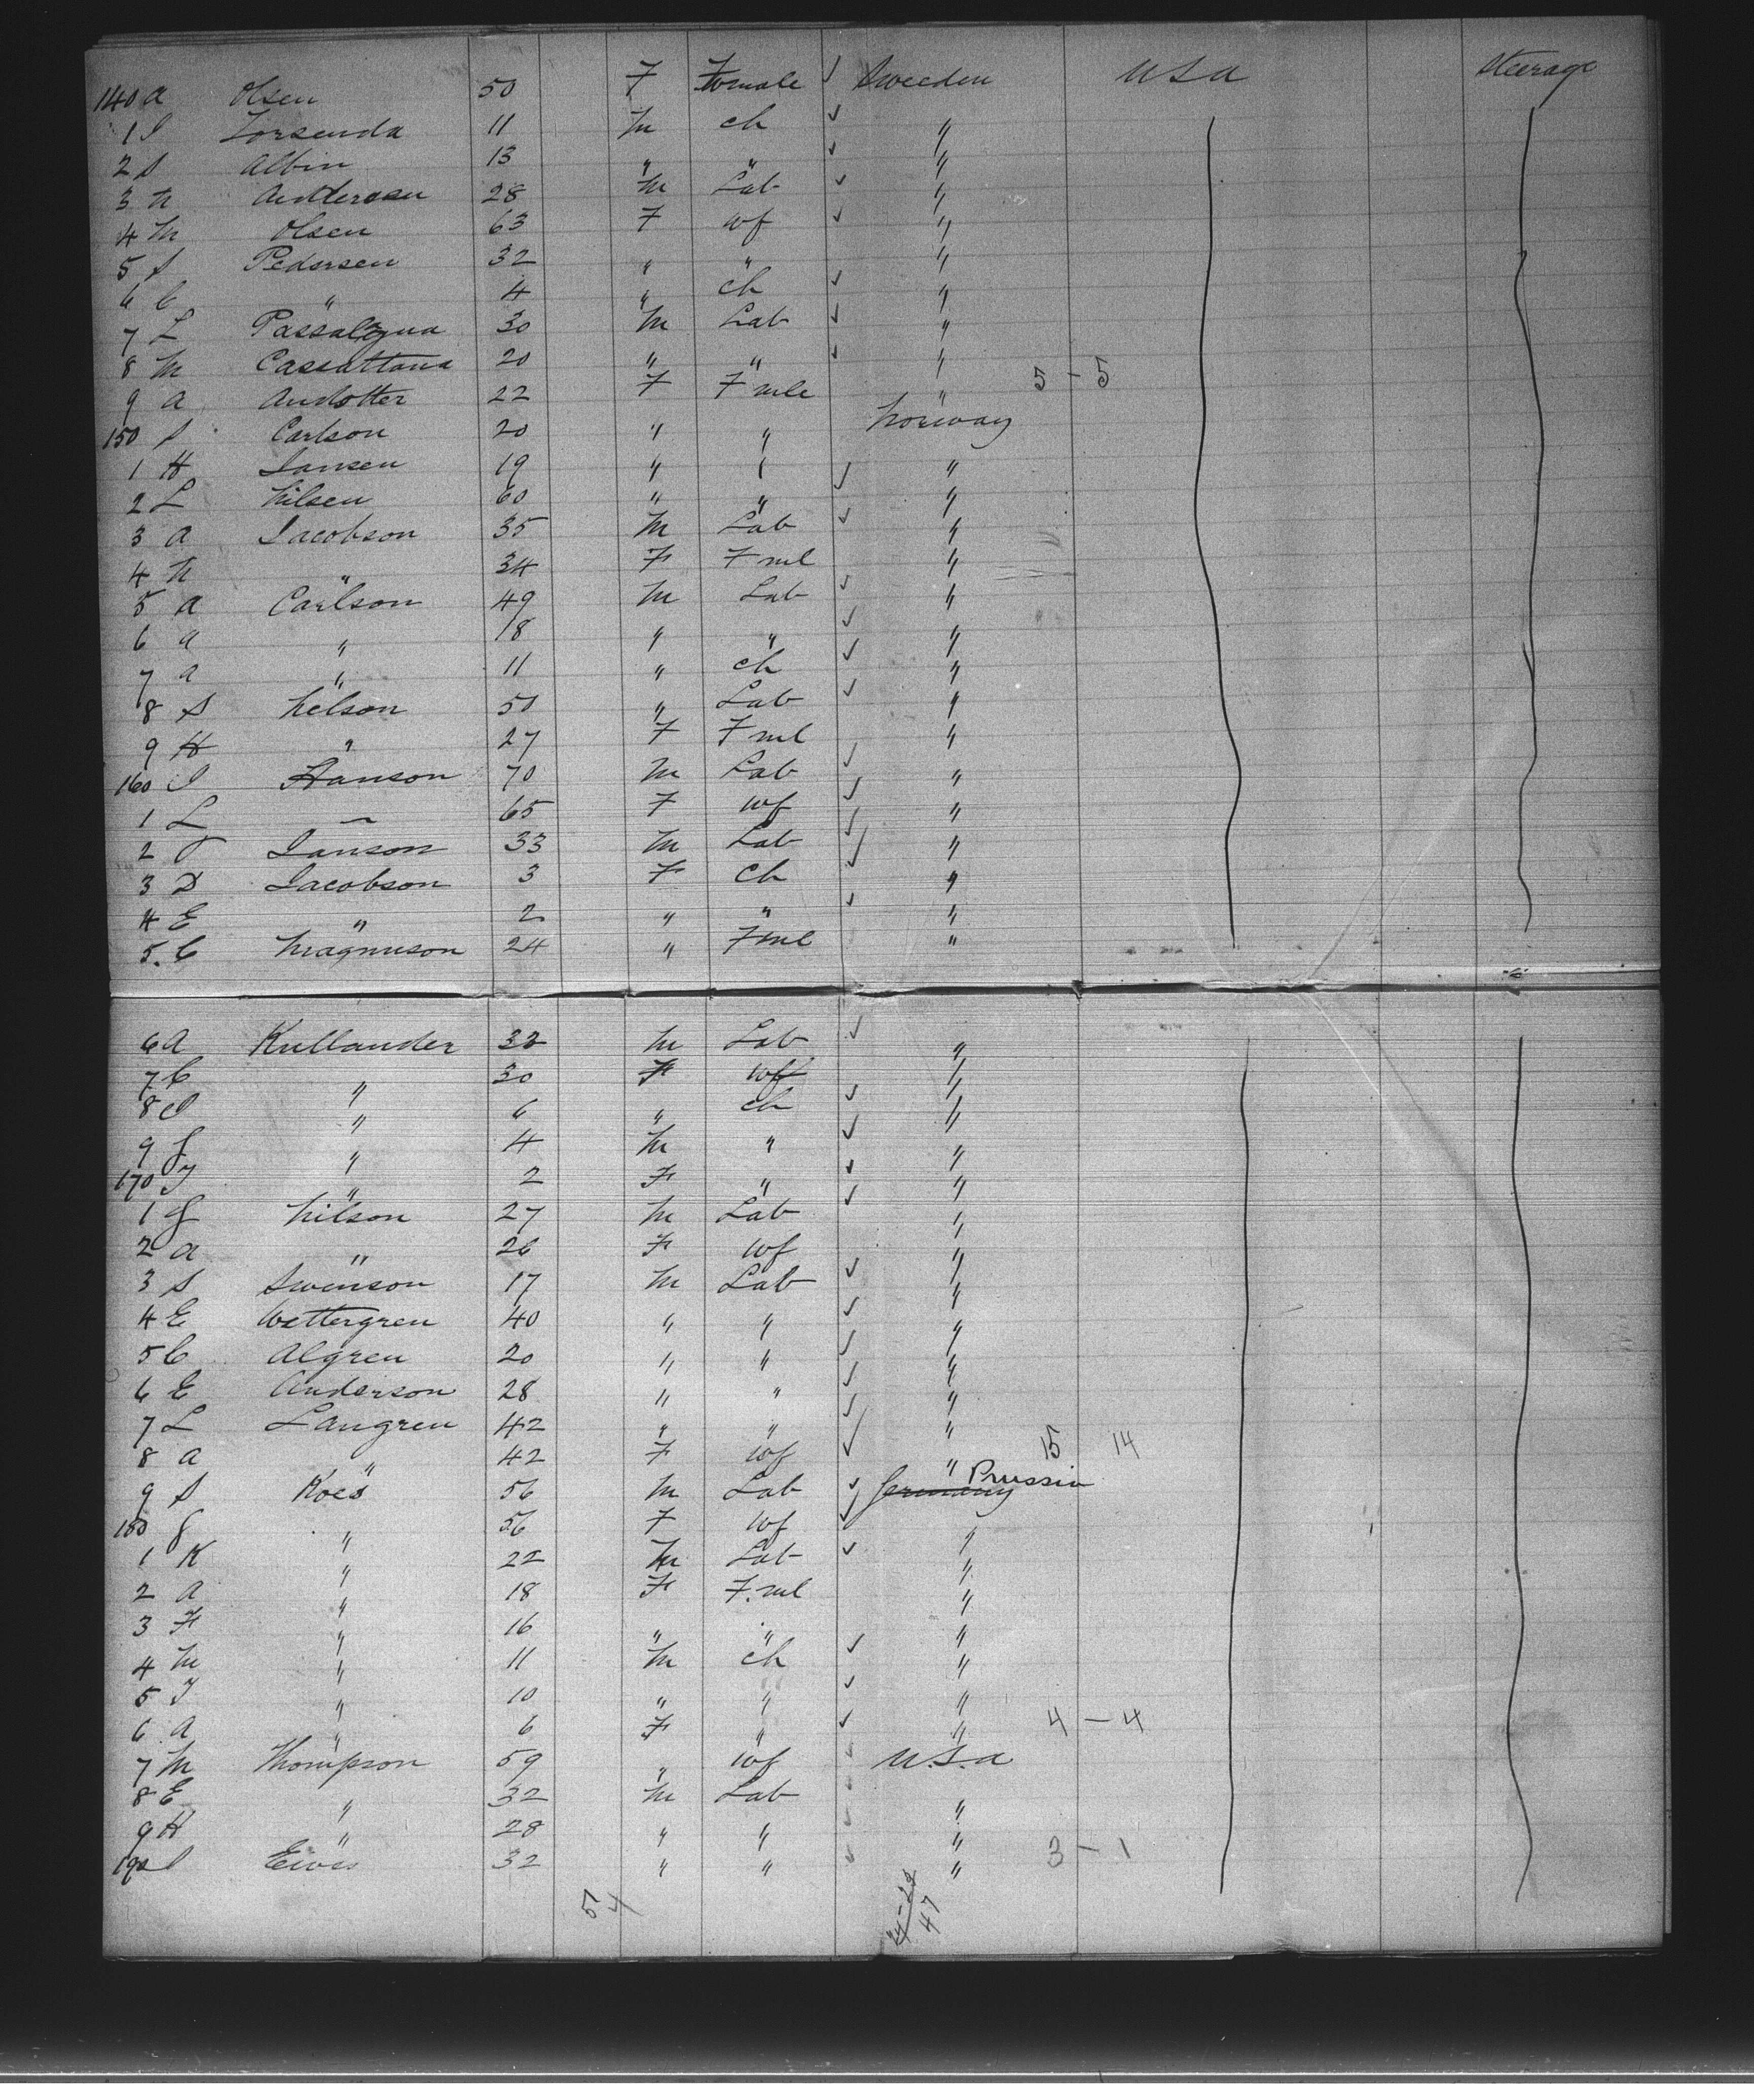 140 A Olsen 50 F Female ✓ Sweeden USA Steerage
1 I Torsenda 11 M ch ✓ "
2 S Albin 13 " " ✓ "
3 N Andterosen 28 M Lab ✓ "
4 M Olsen 63 F wf ✓ "
5 S Pedersen 32 " " "
6 C " 4 " ch ✓ "
7 L Passalqua 30 M Lab ✓ "
8 M Cassattana 20 " " ✓ "
9 A Andotter 22 F F mle " 5 - 5
150 S Carlson 20 " " Norway
1 H Jansen 19 " " ✓ "
2 L Nilsen 60 " " "
3 A Jacobson 35 M Lab ✓ "
4 N " 34 F F ml "
5 A Carlson 49 M Lab ✓ "
6 A " 18 " " ✓ "
7 A " 11 " ch ✓ "
8 S Nelson 50 " Lab ✓ "
9 H " 27 F F ml "
160 I Hanson 70 M Lab ✓ "
1 L " 65 F wf ✓ "
2 Janson 33 M Lab ✓ "
3 D Jacobson 3 F Ch ✓ "
4 E " 2 " " ✓ "
5. C Magnuson 24 " F ml "
6 A Kullander 32 M Lab ✓ "
7 C " 30 F wf "
8 I " 6 " ch ✓ "
9 J " 4 M " ✓ "
170 T " 2 F " ✓ "
1 J Nilson 27 M Lab ✓ "
2 A " 26 F wf "
3 S Swenson 17 M Lab ✓ "
4 E Wettergren 40 " " ✓ "
5 C Algren 20 " " ✓ "
6 E Anderson 28 " " ✓ "
7 L Langren 42 " " ✓ "
8 A " 42 F wf ✓ " 15 14
9 S Koes 56 M Lab ✓ Germany Prussia
180 J " 56 F wf ✓ "
1 K " 22 M Lab ✓ "
2 A " 18 F F. ml "
3 F " 16 " " "
4 M " 11 M ch ✓ "
5 T " 10 " " ✓ "
6 A " 6 F " ✓ " 4 - 4
7 M Thompson 59 " wf ✓ U.S.A
8 E " 32 M Lab ✓ "
9 H " 28 " " ✓ "
190 32 " " ✓ " 3 - 1
5 4 47